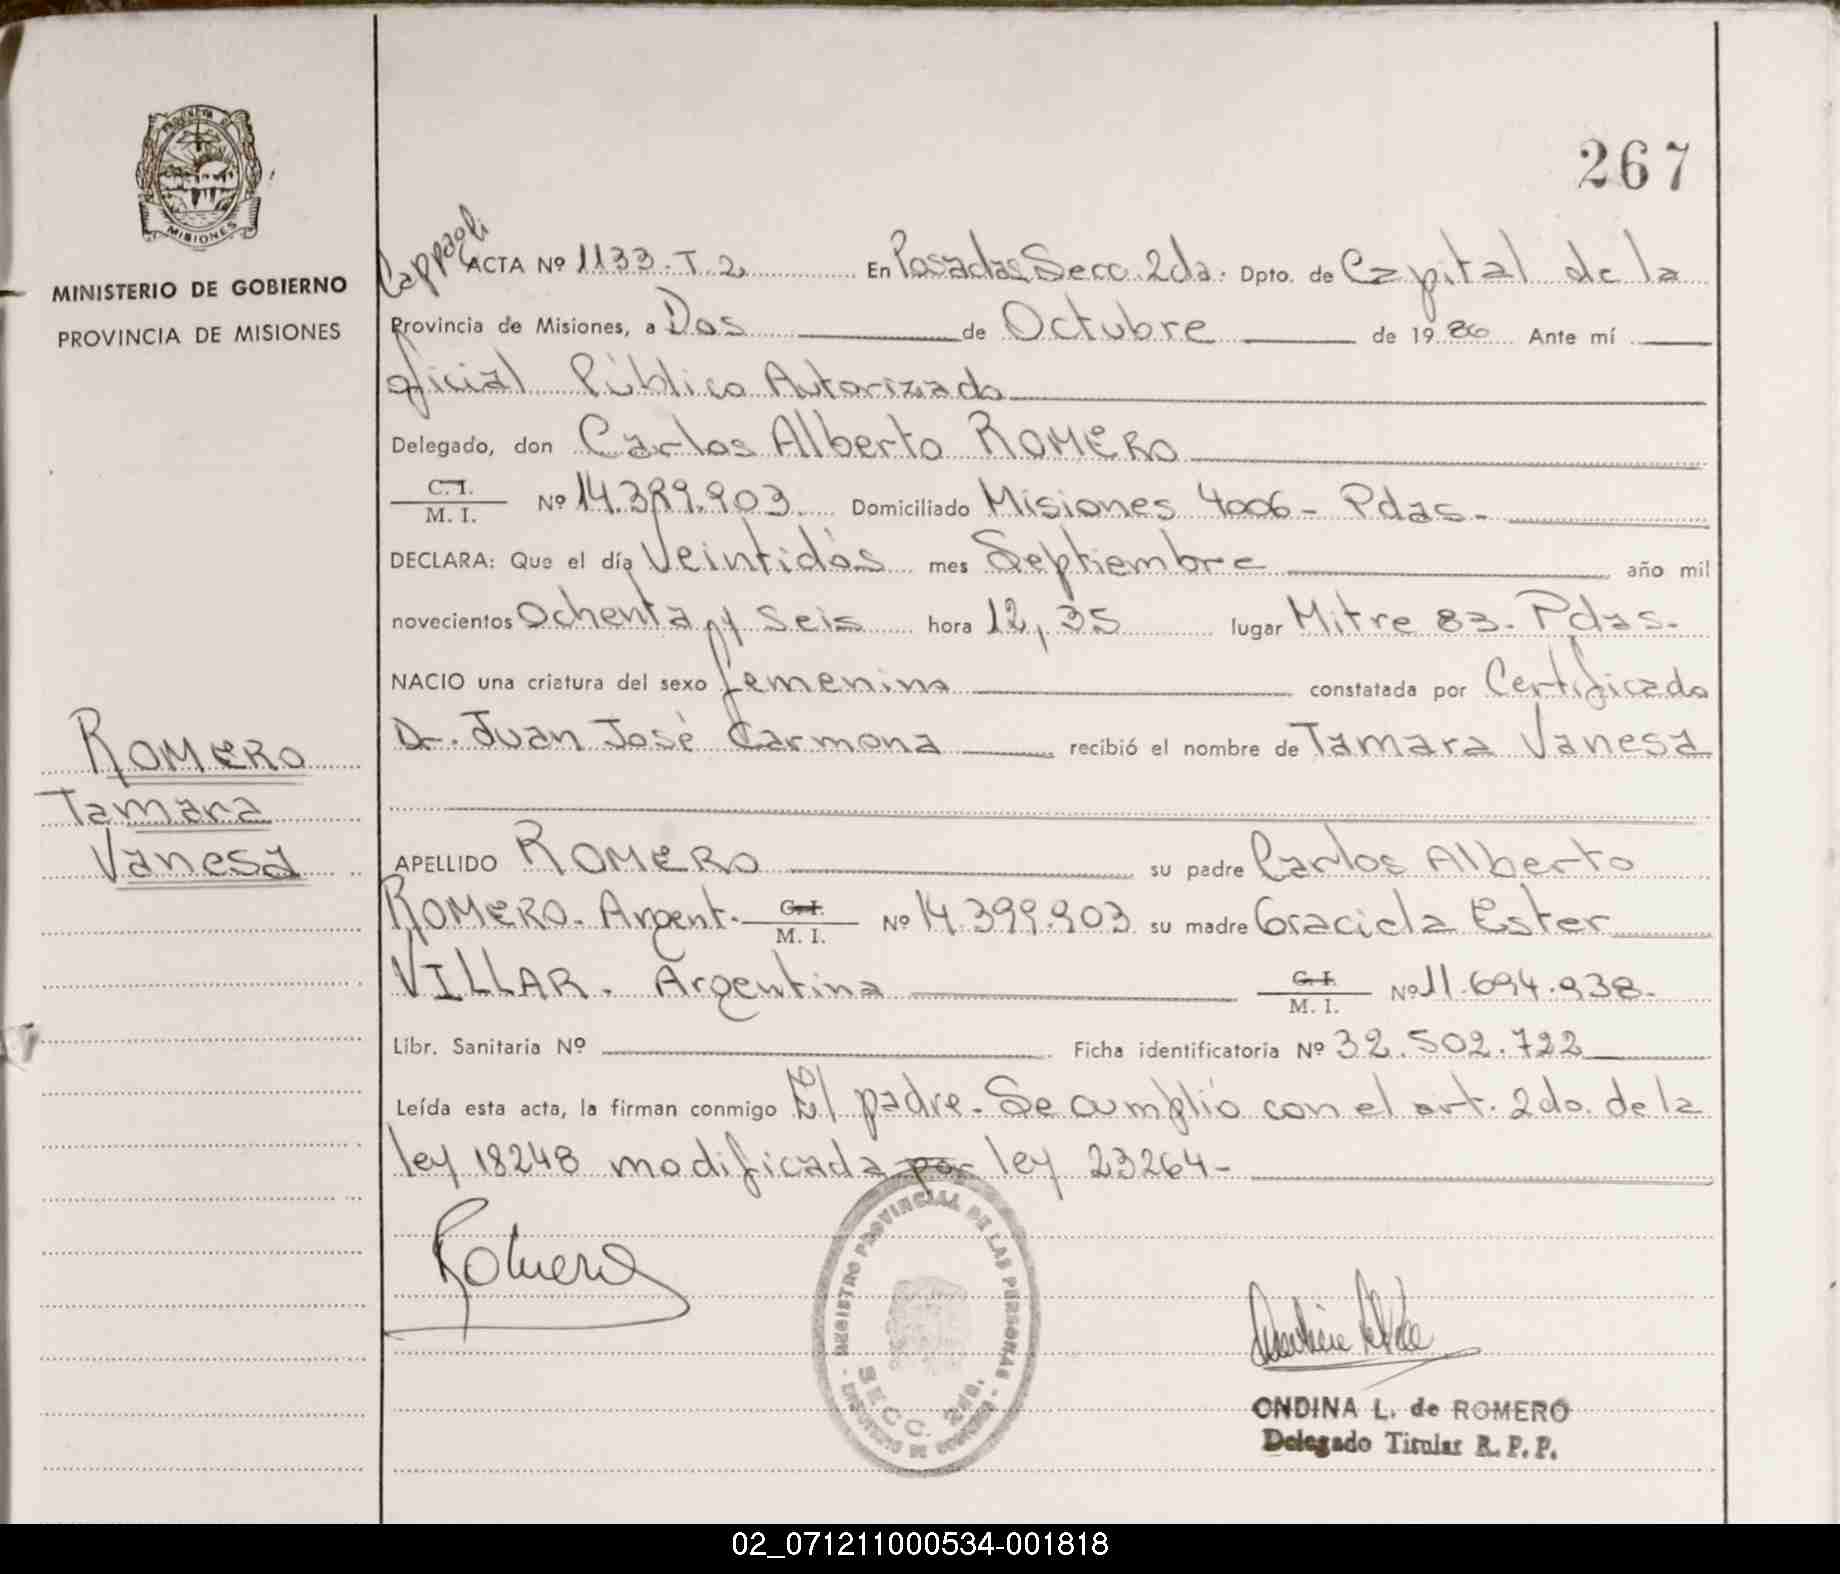 267
PROVINCIA DE
MISIONES
MINISTERIO DE GOBIERNO
PROVINCIA DE MISIONES
Cappagli
ACTA Nº 1133. T. 2 En Posadas Secc. 2da. Dpto. de Capital de la
Provincia de Misiones, a Dos de Octubre de 19 86 Ante mí
oficial Público Autorizado
Delegado, don Carlos Alberto ROMERO
C. I. / M. I. Nº 14.399.903. Domiciliado Misiones 4006 - Pdas.-
DECLARA: Que el día Veintidós mes Septiembre año mil
novecientos Ochenta y Seis hora 12,35 lugar Mitre 83. Pdas.
NACIO una criatura del sexo femenino constatada por Certificado
Dr. Juan José Carmona recibió el nombre de Tamara Vanesa
ROMERO
Tamara
Vanesa
APELLIDO ROMERO su padre Carlos Alberto
ROMERO. Argent. C. I. / M. I. Nº 14.399.903 su madre Graciela Ester
VILLAR. Argentina C. I. / M. I. Nº 11.694.938.
Libr. Sanitaria Nº Ficha identificatoria Nº 32.502.722
Leída esta acta, la firman conmigo El padre. Se cumplió con el art. 2do. de la
ley 18248 modificada por ley 23264-
Romero
REGISTRO PROVINCIAL DE LAS PERSONAS
SECC. 2da.
ONDINA L. de ROMERO
Delegado Titular R. P. P.
02_071211000534-001818